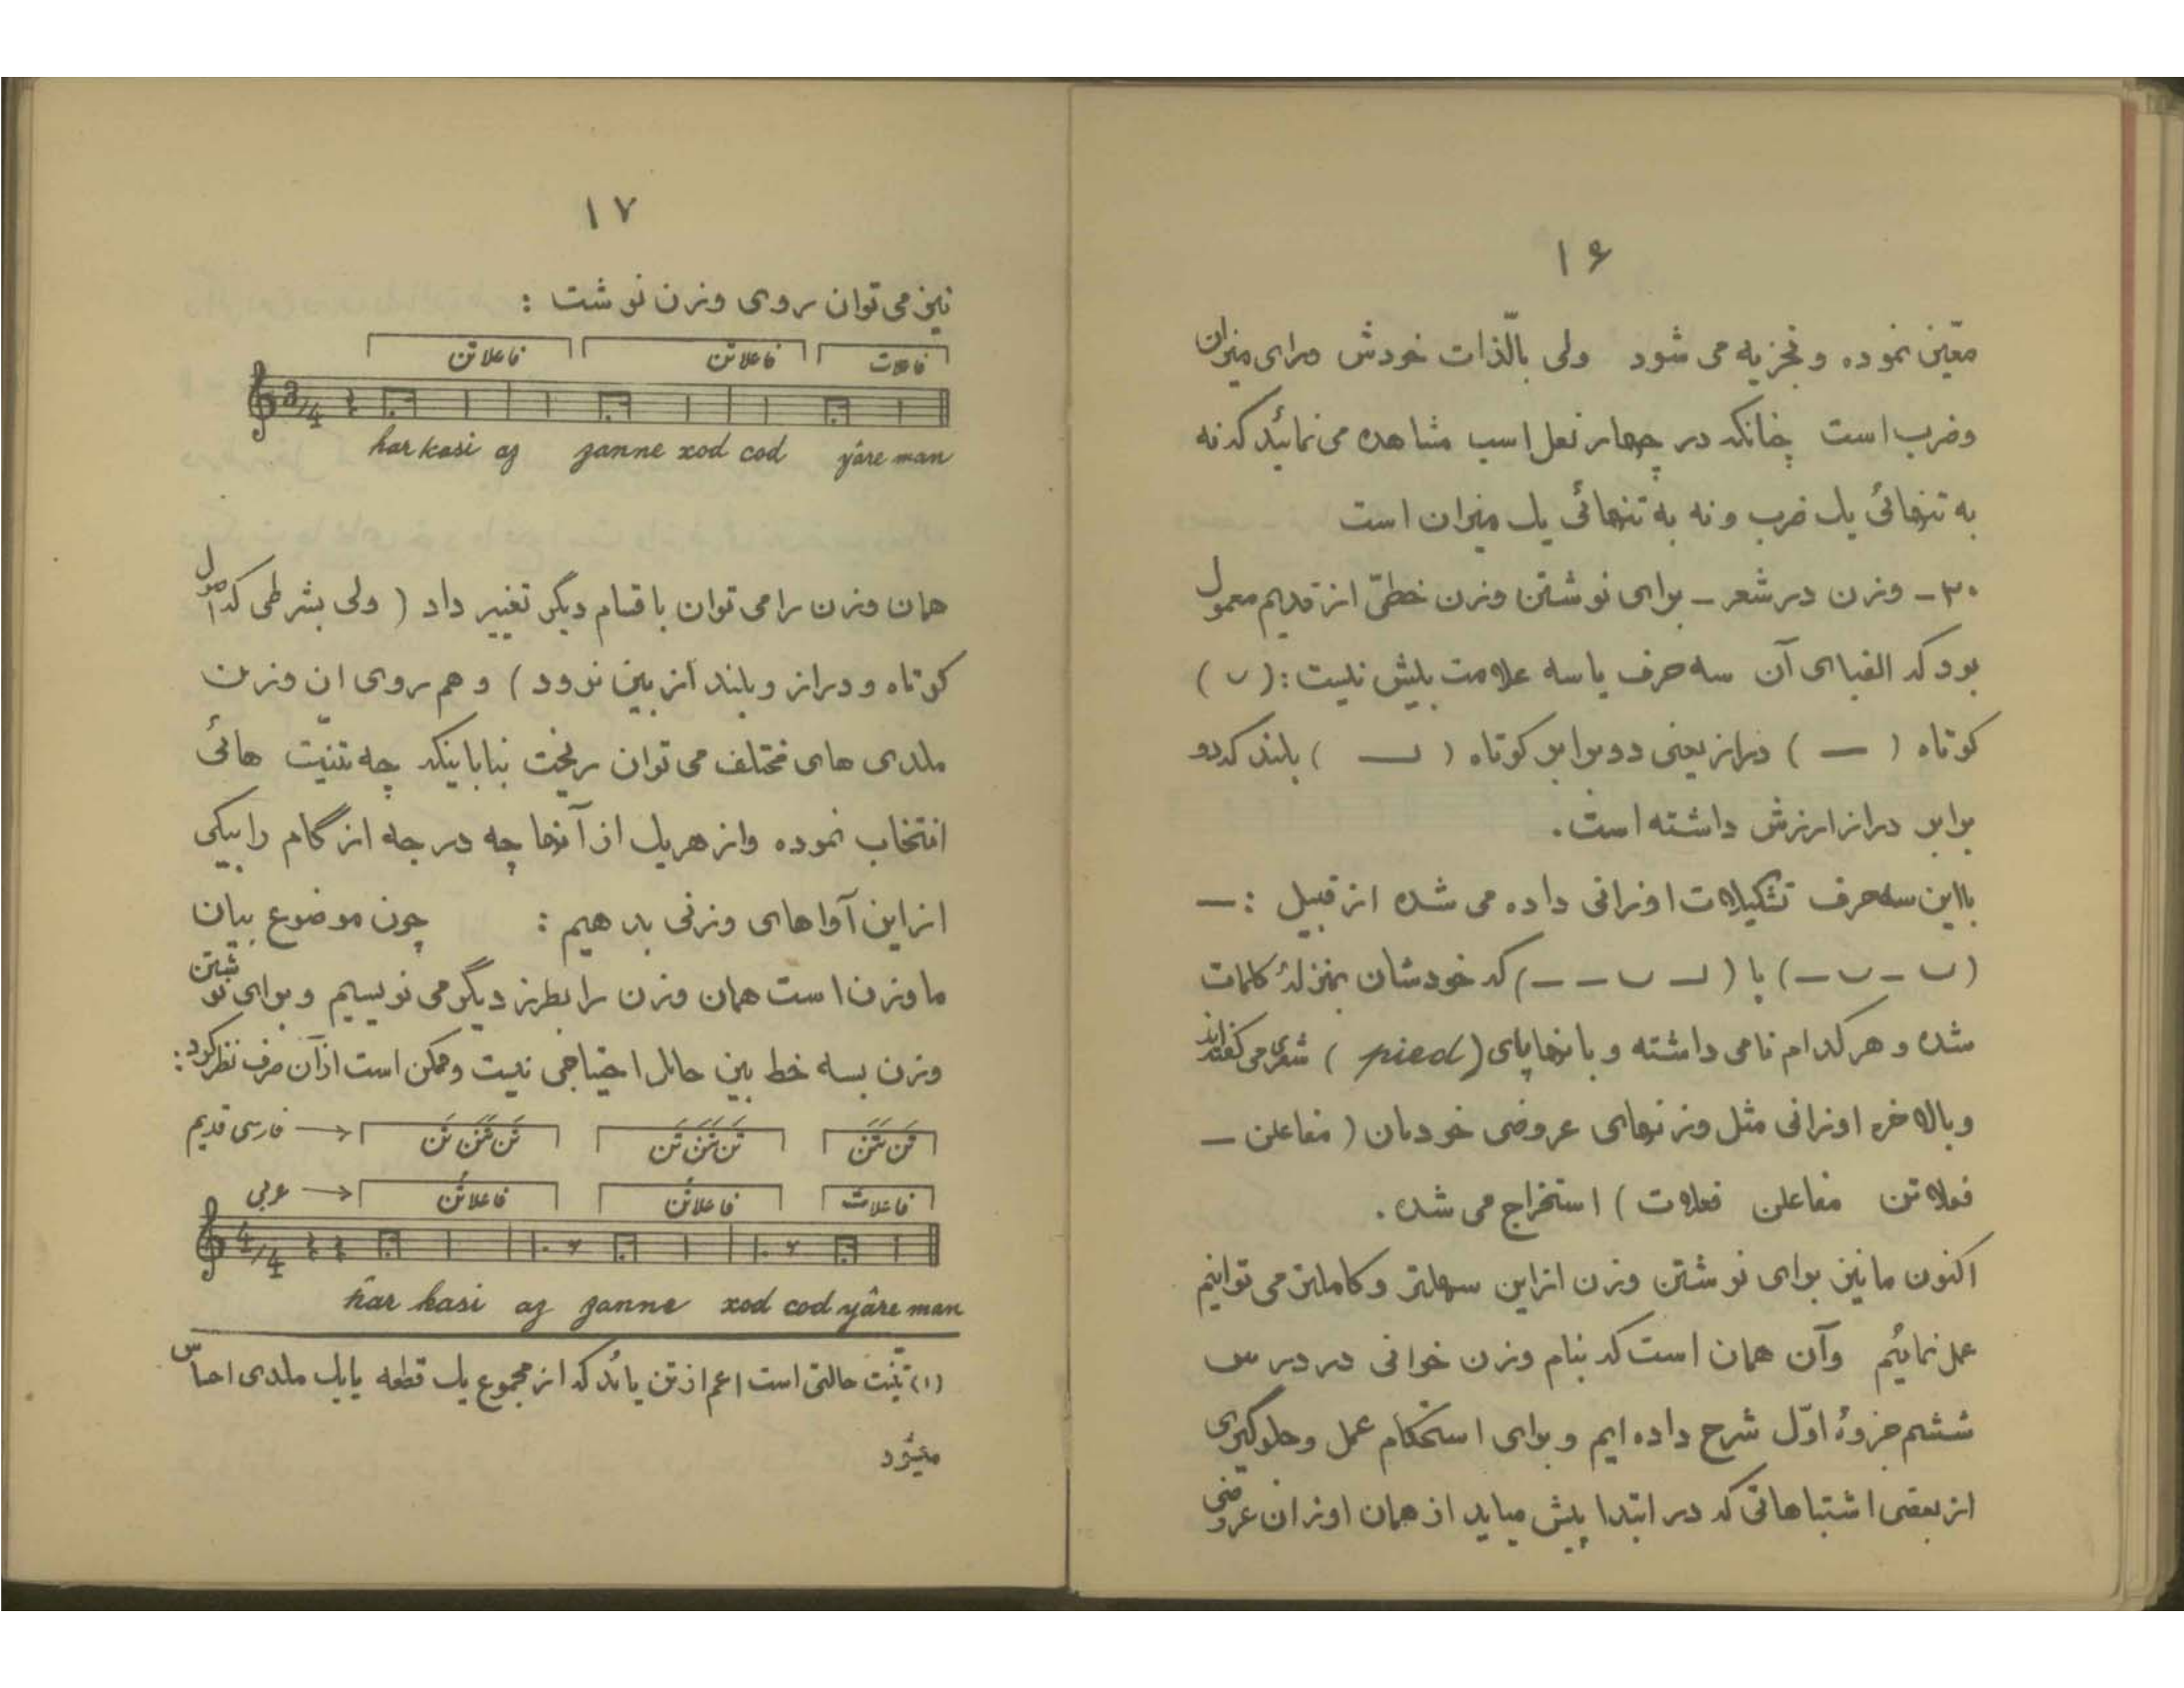 ۱۶
معیّن نموده و تجزیه می شود ولی بالّذات خودش دارای میزان
وضرب است چنانکه در چهار نعل اسب مشاهده می نمائید که نه
به تنهائی یک ضرب و نه به تنهائی یک میزان است
۳۰ـ وزن در شعر ـ برای نوشتن وزن خطّی از قدیم معمول
بود که الفبای آن سه حرف یا سه علامت بیش نیست : ( ں )
کوتاه ( — ) دراز یعنی دو برابر کوتاه ( ـں ) بلند که دو
برابر دراز ارزش داشته است .
با این سه حرف تشکیلات اوزانی داده می شده از قبیل : —
( ں – ں – ) یا ( ـں ں – – ) که خودشان بمنزلهٔ کلمات
شده و هر کدام نامی داشته و بانها پای ( pied ) شعری می گفته‌اند
و بالاخره اوزانی مثل وزنهای عروضی خودمان ( مفاعلن —
فعلاتن مفاعلن فعلات ) استخراج می شده .
اکنون ما نیز برای نوشتن وزن از این سهلتر و کاملتر می توانیم
عمل نمائیم وآن همان است که بنام وزن خوانی در درس
ششم جزوهٔ اوّل شرح داده ایم و برای استحکام عمل و جلوگیری
از بعضی اشتباهاتی که در ابتدا پیش میاید از همان اوزان عروضی
۱۷
نیز می توان روی وزن نوشت :
فاعلاتن فاعلاتن فاعلات
3/4
har kasi az zanne xod cod yâre man
همان وزن را می توان باقسام دیگر تغییر داد ( ولی بشرطی که اصول
کوتاه و دراز و بلند از بین نرود ) و هم روی این وزن
ملدی های مختلف می توان ریخت بنا باینکه چه تنیّت هائی
انتخاب نموده واز هریک از آنها چه درجه از گام را بیکی
از این آواهای وزنی بدهیم : چون موضوع بیان
ما وزن است همان وزن را بطرز دیگر می نویسیم و برای نوشتن
وزن بسه خط بین حامل احتیاجی نیست و ممکن است از آن صرف نظر کرد :
فارسی قدیم → تَن تَنَن تَن تَن تَنَن تَن تَن تَنَن
عربی → فاعلاتُن فاعلاتُن فاعلات
4/4
har kasi az zanne xod cod yâre man
(۱) تنیّت حالتی است اعم از تن یا مُد که از مجموع یک قطعه یا یک ملدی احساس
میشود